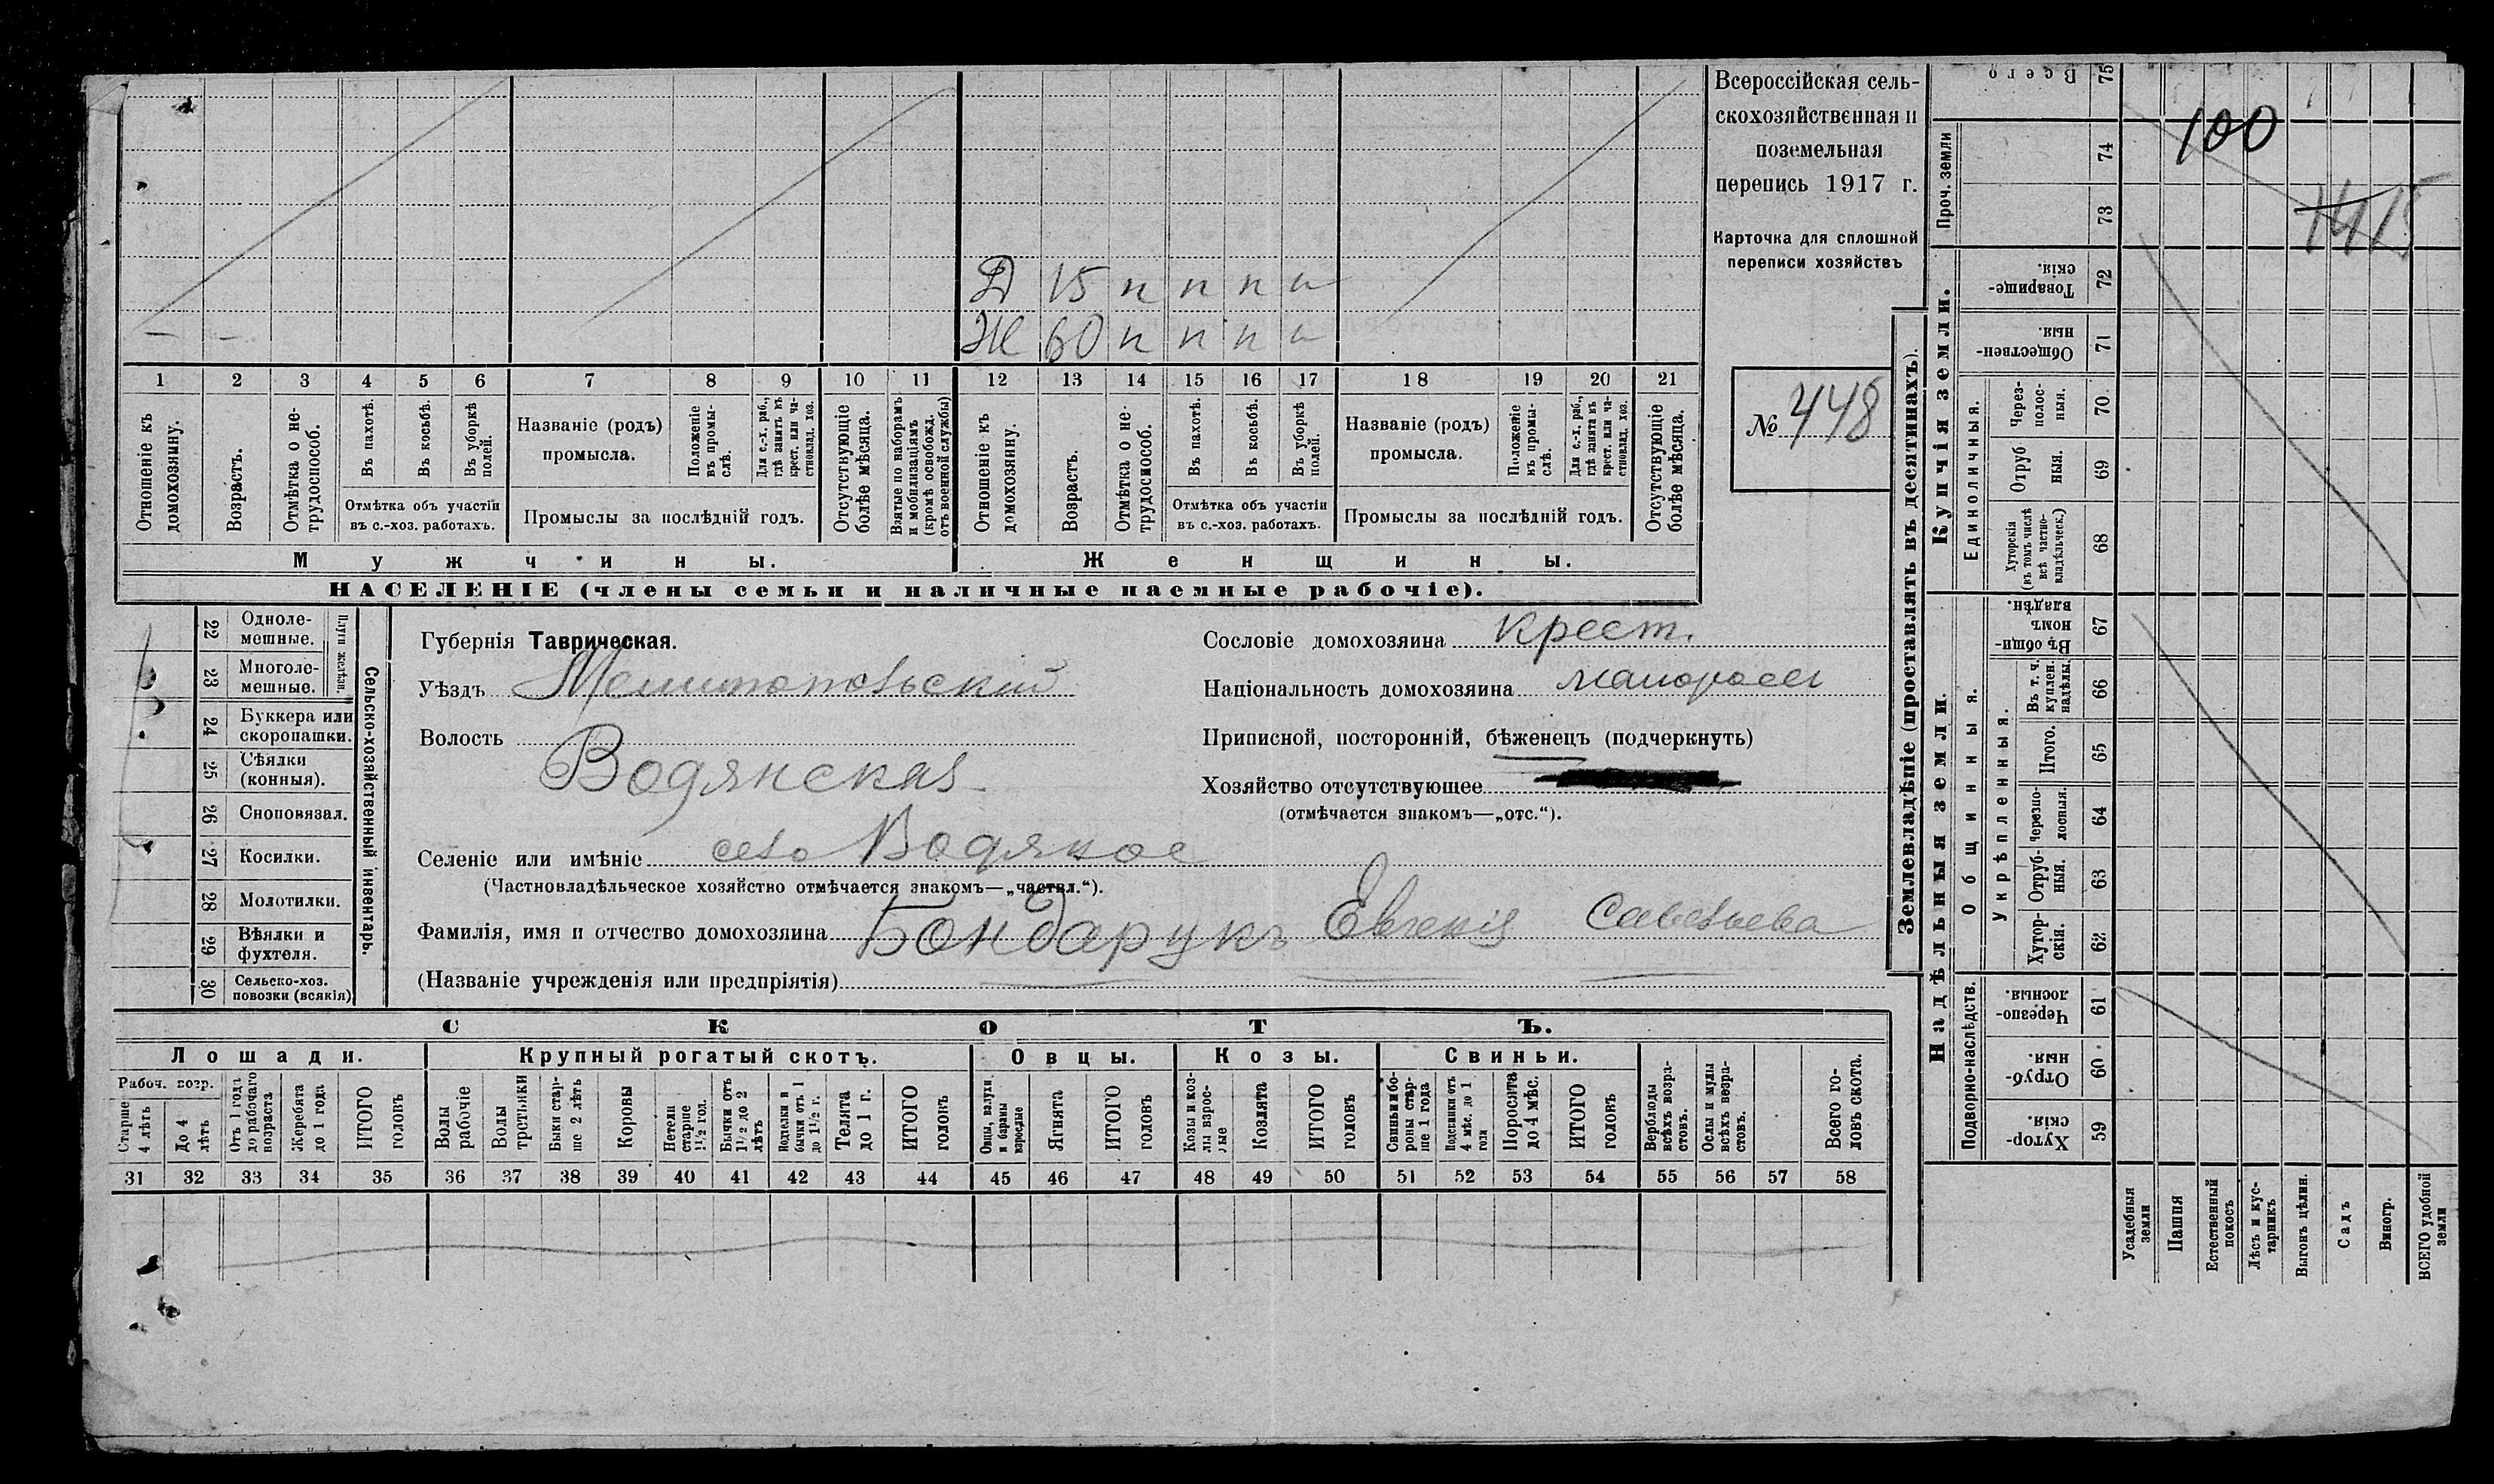 Всероссійская сель-
скохозяйственная и
поземельная
перепись 1917 г.
Карточка для сплошной
переписи хозяйствъ
№ 448
Д 15 н н н н
Ж 60 н н н н
1 2 3 4 5 6 7 8 9 10 11 12 13 14 15 16 17 18 19 20 21
Отношеніе къ домохозяину.
Возрастъ.
Отмѣтка о не-трудоспособ.
Въ пахотѣ.
Въ косьбѣ.
Въ уборкѣ полей.
Отмѣтка объ участіи
въ с.-хоз. работахъ.
Названіе (родъ)
промысла.
Положеніе въ промы-слѣ.
Для с.-х. раб., гдѣ занятъ въ крест. или ча-стновлад. хоз.
Промыслы за послѣдній годъ.
Отсутствующіе болѣе мѣсяца.
Взятые по наборамъ и мобилизаціямъ (кромѣ освобожд. отъ военной службы)
Отношеніе къ домохозяину.
Возрастъ.
Отмѣтка о не-трудоспособ.
Въ пахотѣ.
Въ косьбѣ.
Въ уборкѣ полей.
Отмѣтка объ участіи
въ с.-хоз. работахъ.
Названіе (родъ)
промысла.
Положеніе въ промы-слѣ.
Для с.-х. раб., гдѣ занята въ крест. или ча-стновлад. хоз.
Промыслы за послѣдній годъ.
Отсутствующіе болѣе мѣсяца.
Мужчины.
Женщины.
НАСЕЛЕНІЕ (члены семьи и наличные наемные рабочіе).
Сельско-хозяйственный инвентарь.
Плуги желѣзн.
22 Одноле-мешные.
23 Многоле-мешные.
24 Буккера или скоропашки.
25 Сѣялки (конныя).
26 Сноповязал.
27 Косилки.
28 Молотилки.
29 Вѣялки и фухтеля.
30 Сельско-хоз. повозки (всякія)
Губернія Таврическая.
Уѣздъ Мелитопольскій
Волость Водянская
Селеніе или имѣніе село Водяное
(Частновладѣльческое хозяйство отмѣчается знакомъ—„частвл.“).
Фамилія, имя и отчество домохозяина Бондарукъ Евгенія Савельева
(Названіе учрежденія или предпріятія)
Сословіе домохозяина крест.
Національность домохозяина малоросс
Приписной, посторонній, бѣженецъ (подчеркнуть)
Хозяйство отсутствующее
(отмѣчается знакомъ—„отс.“).
СКОТЪ.
Лошади.
Крупный рогатый скотъ.
Овцы.
Козы.
Свиньи.
Рабоч. возр.
Старше 4 лѣтъ
До 4 лѣтъ
Отъ 1 года до рабочаго возраста
Жеребята до 1 года
ИТОГО головъ
Волы рабочіе
Волы третьяки
Быки стар-ше 2 лѣтъ
Коровы
Нетели старше 1½ год.
Бычки отъ 1½ до 2 лѣтъ
Подтелки и бычки отъ 1 до 1½ г.
Телята до 1 г.
ИТОГО головъ
Овцы, валухи и бараны взрослые
Ягнята
ИТОГО головъ
Козы и коз-лы взрос-лые
Козлята
ИТОГО головъ
Свиньи и бо-роны стар-ше 1 года
Подсвинки отъ 4 мѣс. до 1 года
Поросята до 4 мѣс.
ИТОГО головъ
Верблюды всѣхъ возра-стовъ.
Ослы и мулы всѣхъ возра-стовъ.
Всего го-ловъ скота.
31 32 33 34 35 36 37 38 39 40 41 42 43 44 45 46 47 48 49 50 51 52 53 54 55 56 57 58
Землевладѣніе (проставлять въ десятинахъ).
Купчія земли.
Надѣльныя земли.
Всего 75
Проч. земли 74
73
Товарище-скія. 72
Обществен-ныя. 71
Единоличныя.
Через-полос-ныя. 70
Отруб ныя. 69
Хуторскія (въ томъ числѣ всѣ частно-владѣльческ.) 68
Общинныя.
Въ общи-номъ владѣн. 67
Укрѣпленныя.
Въ т. ч. куплен. надѣлы. 66
Итого. 65
Черезпо-лосныя. 64
Отруб-ныя. 63
Хутор-скія. 62
Подворно-наслѣдств.
Черезпо-лосныя. 61
Отруб-ныя. 60
Хутор-скія. 59
Усадебныя земли
Пашня
Естественный покосъ
Лѣсъ и кус-тарникъ
Выгонъ цѣлин.
Садъ
Виногр.
ВСЕГО удобной земли
100